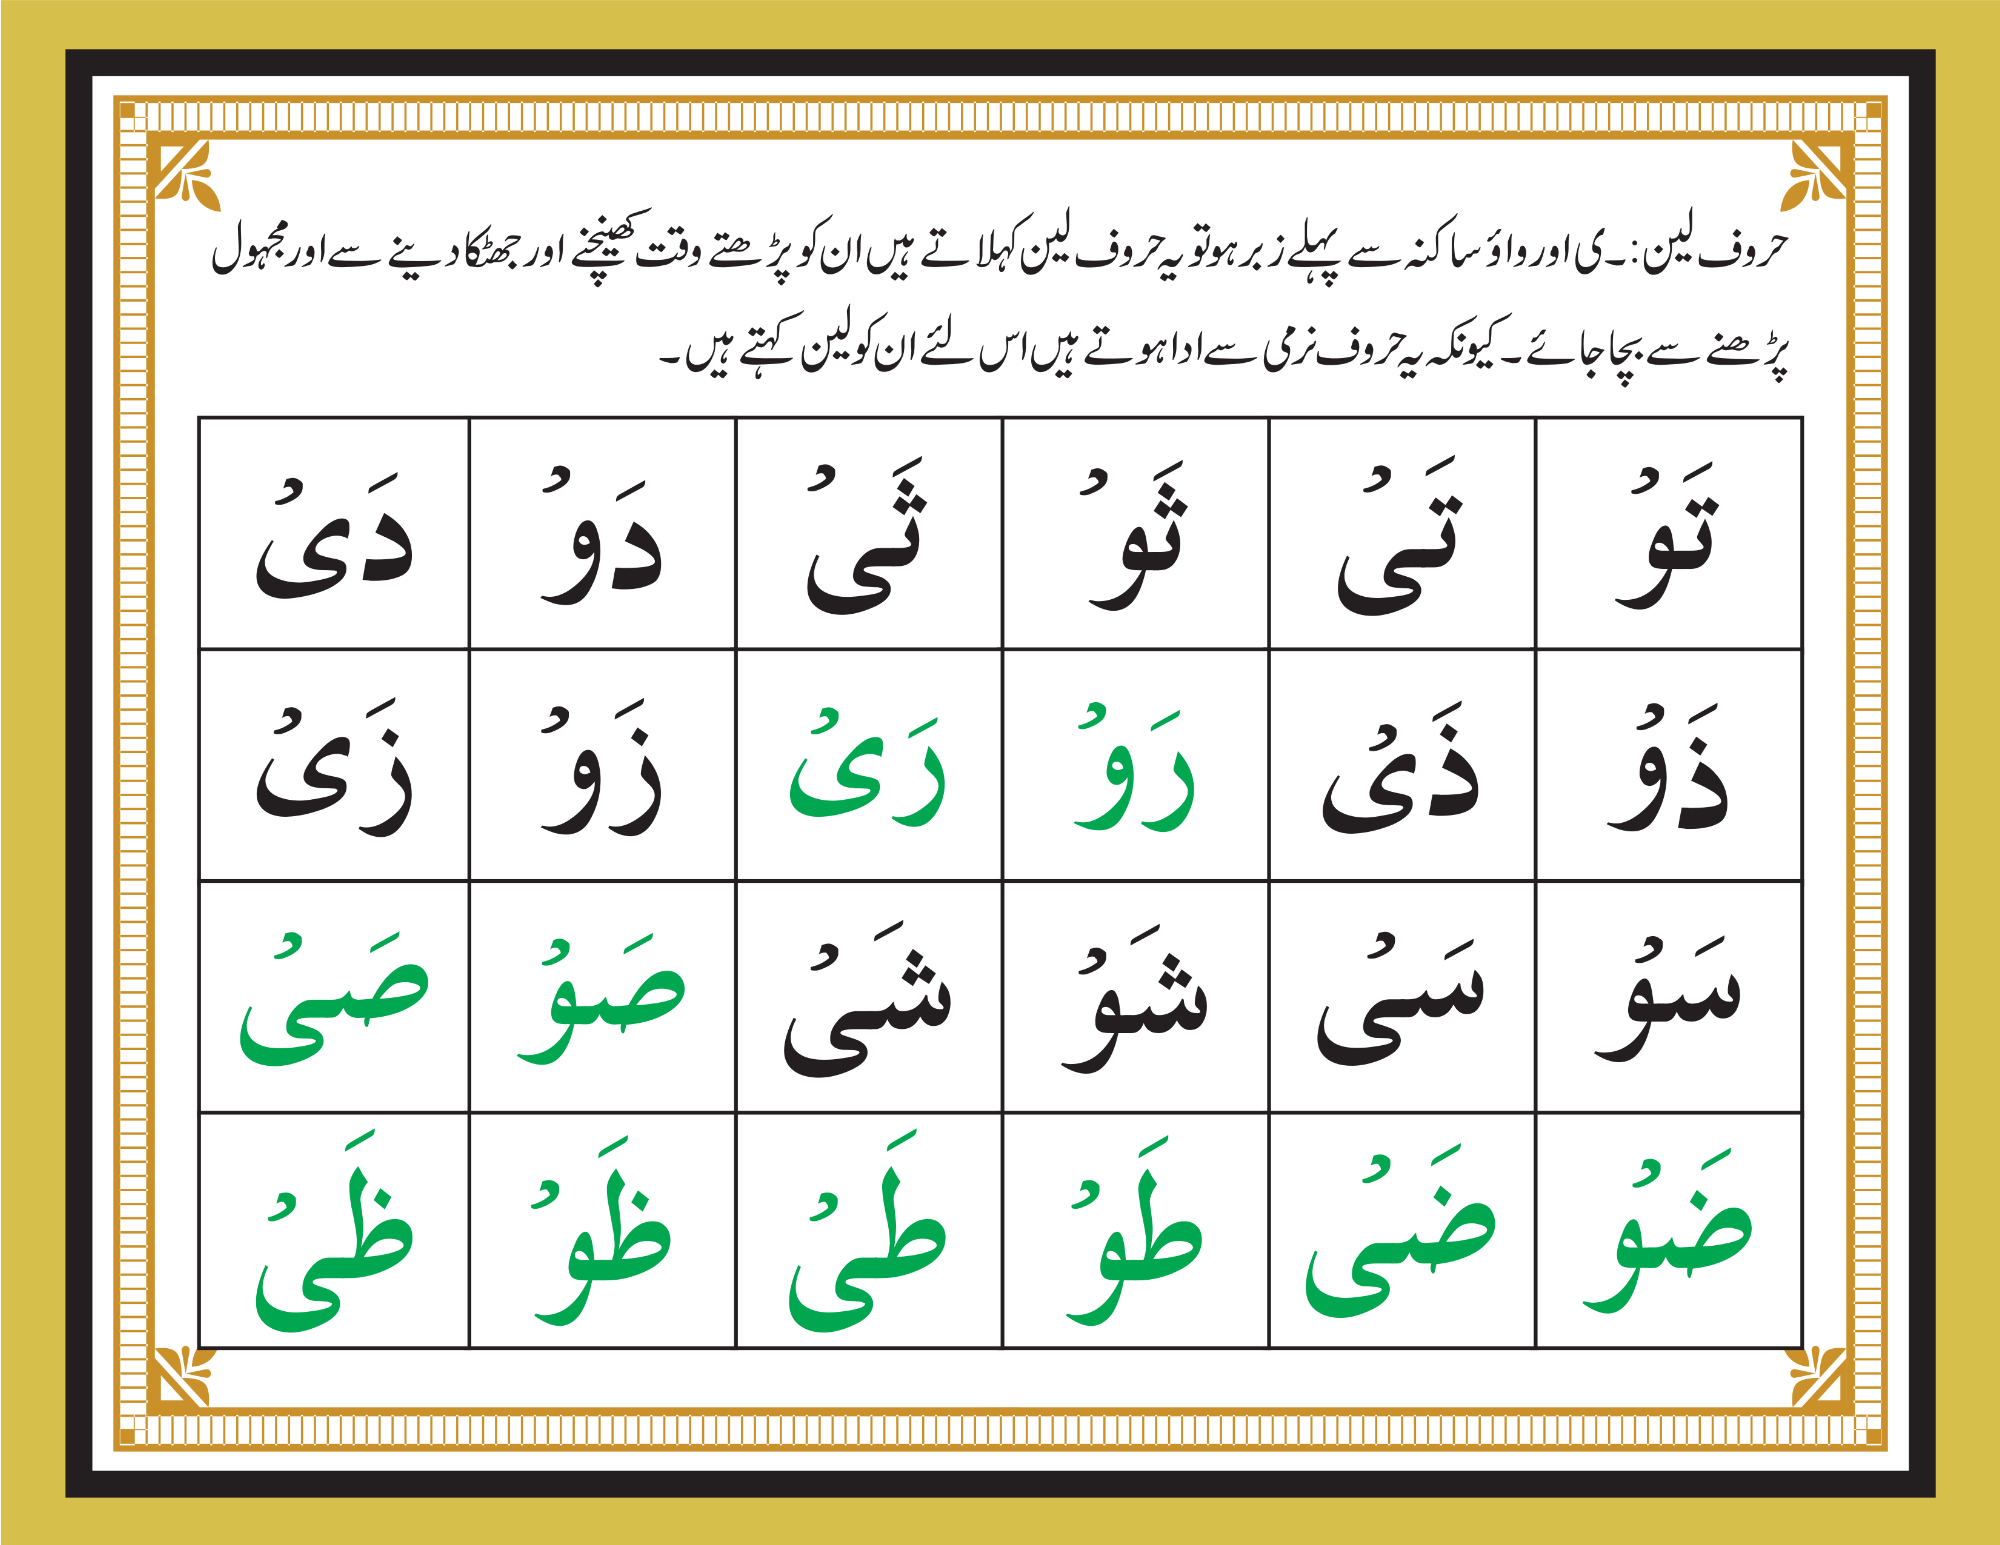 حروف لین:۔ی اور واؤ ساکنہ سے پہلے زبر ہو تو یہ حروف لین کہلاتے ہیں ان کو پڑھتے وقت کھینچنے اور جھٹکا دینے سے اور مجہول
پڑھنے سے بچا جائے۔ کیونکہ یہ حروف نرمی سے ادا ہوتے ہیں اس لئے ان کو لین کہتے ہیں۔
تَوْ تَیْ ثَوْ ثَیْ دَوْ دَیْ
ذَوْ ذَیْ رَوْ رَیْ زَوْ زَیْ
سَوْ سَیْ شَوْ شَیْ صَوْ صَیْ
ضَوْ ضَیْ طَوْ طَیْ ظَوْ ظَیْ